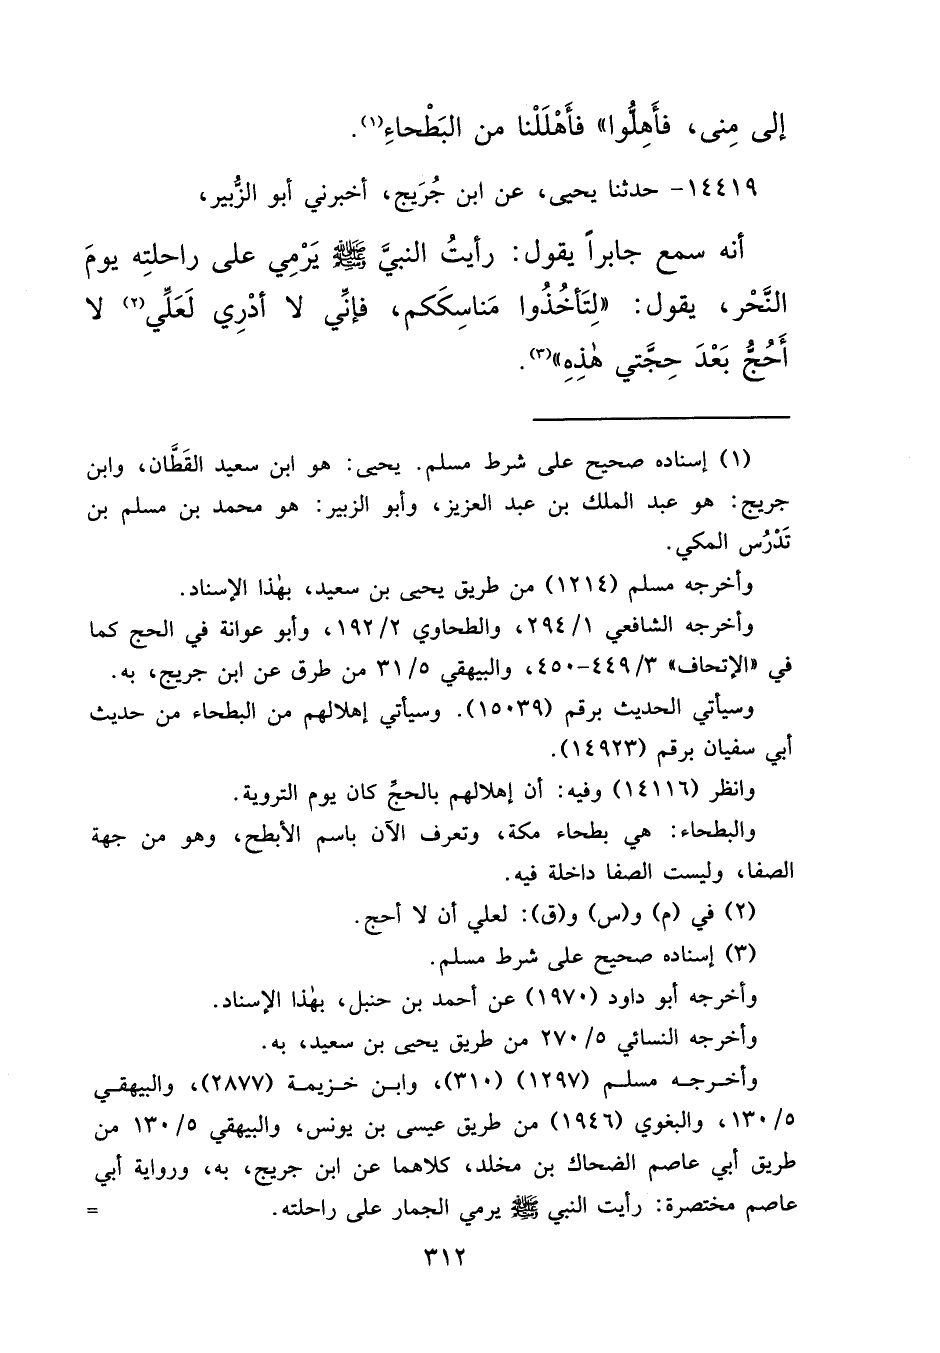 إلى مِنى، فأَهِلُّوا» فأَهْلَلْنا من البَطْحاءِ(١).
١٤٤١٩- حدثنا يحيى، عن ابن جُرَيج، أخبرني أبو الزُّبير،
أنه سمع جابراً يقول: رأيتُ النبيَّ ﷺ يَرْمِي على راحلتِه يومَ
النَّحْر، يقول: «لِتَأخُذُوا مَناسِكَكم، فإنِّي لا أدْرِي لَعَلِّي(٢) لا
أَحُجُّ بَعْدَ حِجَّتي هٰذِهِ»(٣).
(١) إسناده صحيح على شرط مسلم. يحيى: هو ابن سعيد القَطَّان، وابن
جريج: هو عبد الملك بن عبد العزيز، وأبو الزبير: هو محمد بن مسلم بن
تَدْرُس المكي.
وأخرجه مسلم (١٢١٤) من طريق يحيى بن سعيد، بهٰذا الإسناد.
وأخرجه الشافعي ٢٩٤/١، والطحاوي ١٩٢/٢، وأبو عوانة في الحج كما
في «الإتحاف» ٤٤٩/٣-٤٥٠، والبيهقي ٣١/٥ من طرق عن ابن جريج، به.
وسيأتي الحديث برقم (١٥٠٣٩). وسيأتي إهلالهم من البطحاء من حديث
أبي سفيان برقم (١٤٩٢٣).
وانظر (١٤١١٦) وفيه: أن إهلالهم بالحجِّ كان يوم التروية.
والبطحاء: هي بطحاء مكة، وتعرف الآن باسم الأبطح، وهو من جهة
الصفا، وليست الصفا داخلة فيه.
(٢) في (م) و(س) و(ق): لعلي أن لا أحج.
(٣) إسناده صحيح على شرط مسلم.
وأخرجه أبو داود (١٩٧٠) عن أحمد بن حنبل، بهٰذا الإسناد.
وأخرجه النسائي ٢٧٠/٥ من طريق يحيى بن سعيد، به.
وأخرجه مسلم (١٢٩٧) (٣١٠)، وابن خزيمة (٢٨٧٧)، والبيهقي
١٣٠/٥، والبغوي (١٩٤٦) من طريق عيسى بن يونس، والبيهقي ١٣٠/٥ من
طريق أبي عاصم الضحاك بن مخلد، كلاهما عن ابن جريج، به، ورواية أبي
عاصم مختصرة: رأيت النبي ﷺ يرمي الجمار على راحلته. =
٣١٢